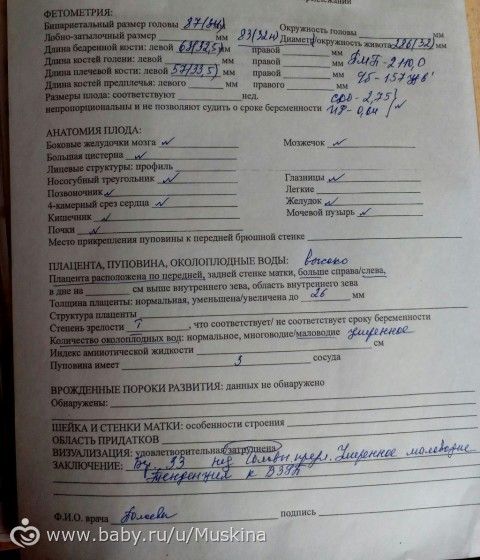 ФЕТОМЕТРИЯ:
Бипариетальный размер головы 87 мм Окружность головы мм
Лобно-затылочный размер мм 83(32н) Диаметр/окружность живота 286(32) мм
Длина бедренной кости: левой 63(32,5) мм правой мм ПМП-2110,0
Длина костей голени: левой мм правой мм ЧБ-157
Длина плечевой кости: левой 57(33,5) мм правой мм
Длина костей предплечья: левого мм правого мм СДО-2,75
Размеры плода: соответствуют нед. ИР-0,64 N
непропорциональны и не позволяют судить о сроке беременности
АНАТОМИЯ ПЛОДА:
Боковые желудочки мозга N Мозжечок N
Большая цистерна N
Лицевые структуры: профиль
Носогубный треугольник N Глазницы N
Позвоночник N Легкие
4-камерный срез сердца N Желудок N
Кишечник N Мочевой пузырь N
Почки N
Место прикрепления пуповины к передней брюшной стенке
ПЛАЦЕНТА, ПУПОВИНА, ОКОЛОПЛОДНЫЕ ВОДЫ: высоко
Плацента расположена по передней, задней стенке матки, больше справа/слева,
в дне на см выше внутреннего зева, область внутреннего зева
Толщина плаценты: нормальная, уменьшена/увеличена до 26 мм
Структура плаценты
Степень зрелости I, что соответствует/ не соответствует сроку беременности
Количество околоплодных вод: нормальное, многоводие/маловодие умеренное
Индекс амниотической жидкости см
Пуповина имеет 3 сосуда
ВРОЖДЕННЫЕ ПОРОКИ РАЗВИТИЯ: данных не обнаружено
Обнаружены:
ШЕЙКА И СТЕНКИ МАТКИ: особенности строения
ОБЛАСТЬ ПРИДАТКОВ
ВИЗУАЛИЗАЦИЯ: удовлетворительная/затруднена
ЗАКЛЮЧЕНИЕ: Б 33 нед. Головн. предл. Умеренное маловодие
Тенденция к ВЗРП
Ф.И.О. врача подпись
www.baby.ru/u/Muskina